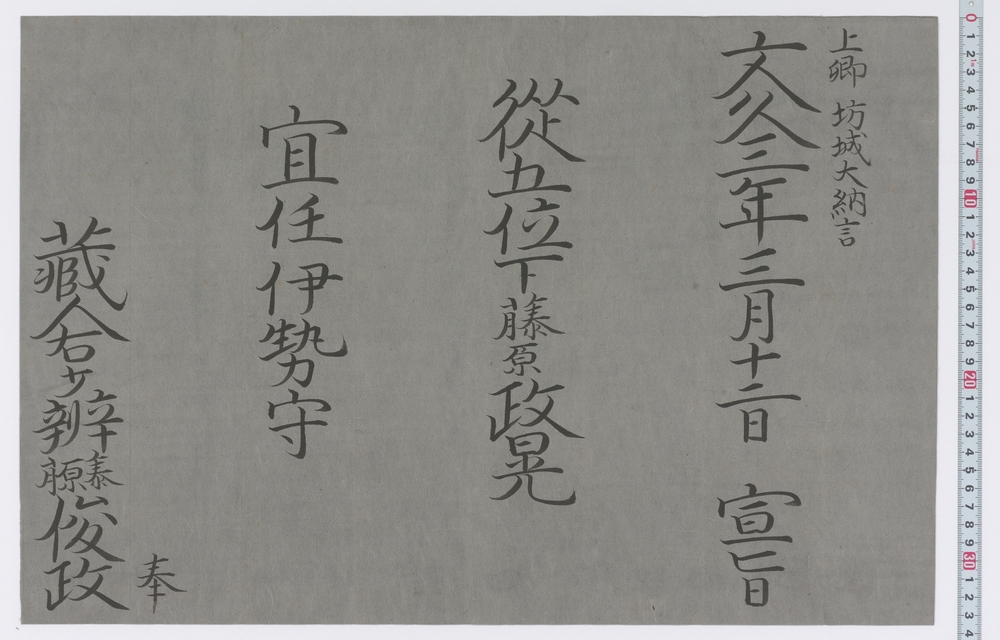 上卿 坊城大納言
文久三年三月十二日 宣旨
從五位下藤原政晃
宜任伊勢守
藏人右少辨藤原俊政
奉